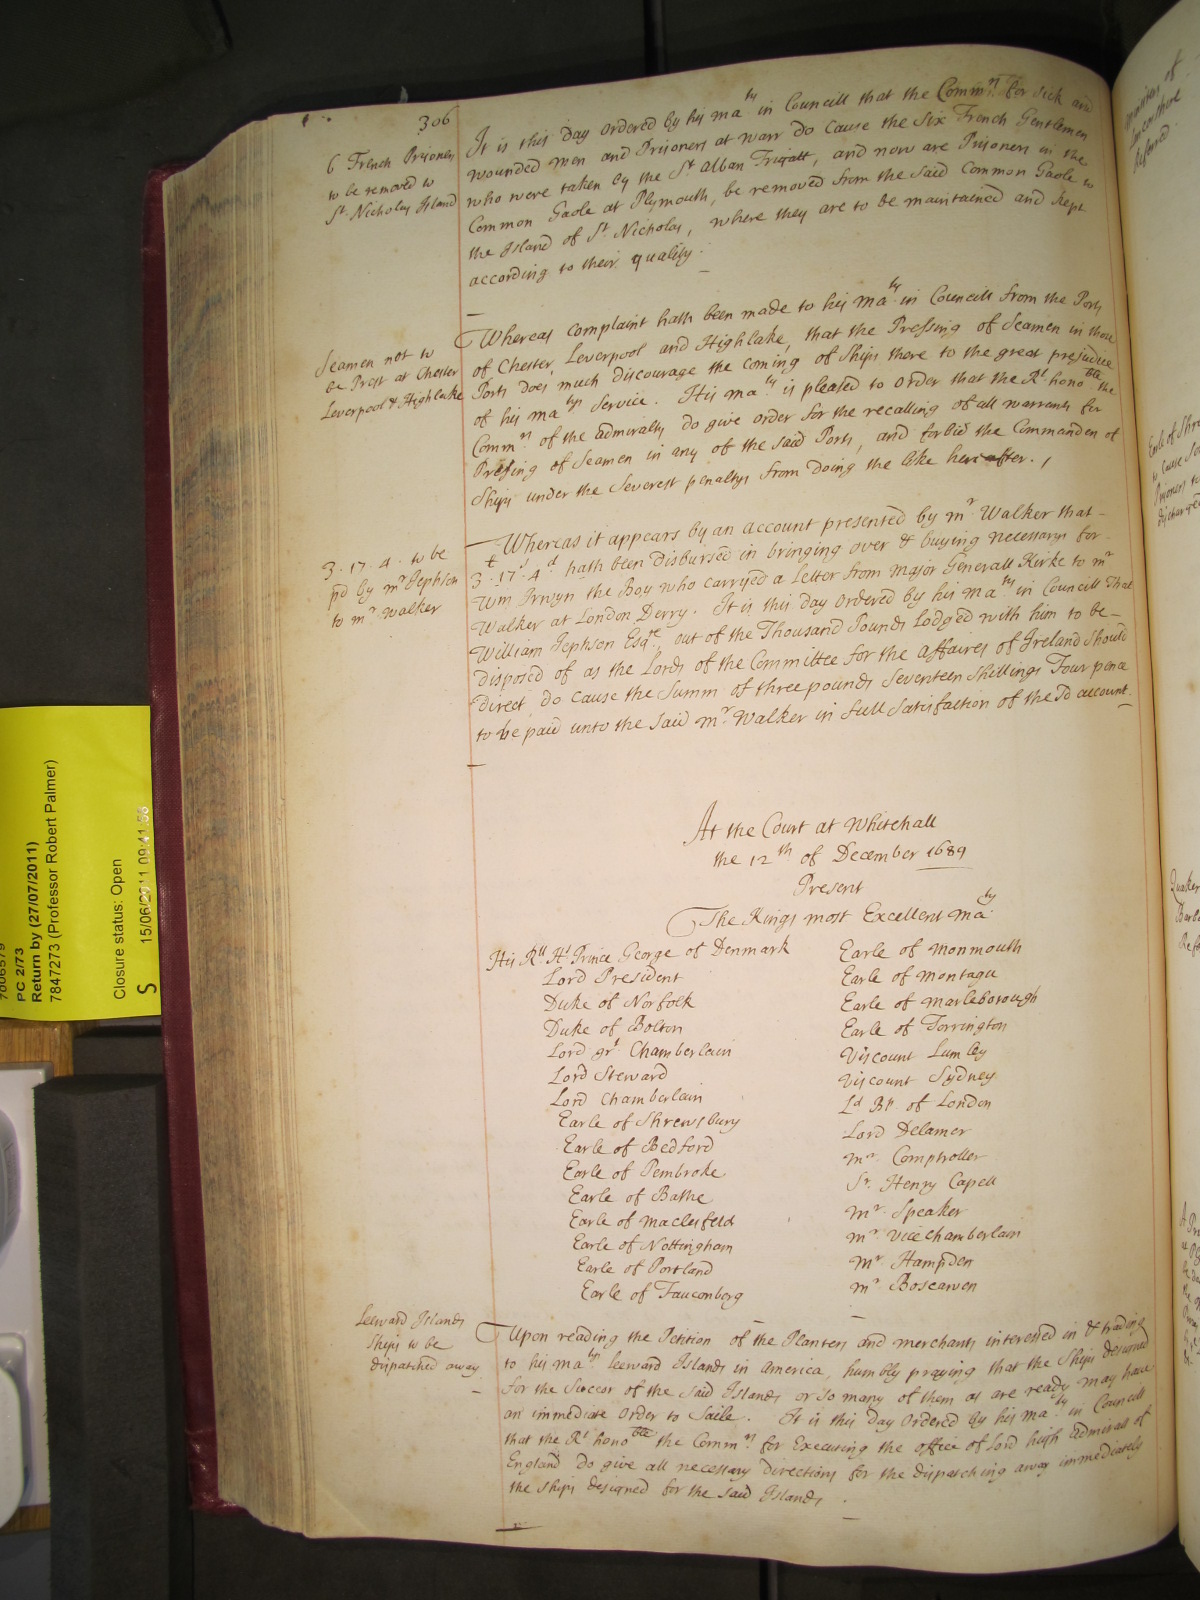 306
6 French Prisoners
to be removed to
St. Nicholas Island
It is this day Ordered by his Ma.ty in Councill that the Comm.rs for Sick and
wounded men and Prisoners at warr Do Cause the Six French Gentlemen
who were taken by the St Alban Frigatt, and now are Prisoners in the
Common Gaole at Plymouth, be removed from the said Common Gaole to
the Island of St Nicholas, where they are to be maintained and kept
according to their quality.
Seamen not to
be Prest at Chester
Leverpool & Highlake
Whereas Complaint hath been made to his Ma.ty in Councill from the Ports
of Chester, Leverpool and Highlake, that the Pressing of Seamen in those
Ports does much discourage the coming of Ships there to the great prejudice
of his Ma.tys Service. His Ma.ty is pleased to Order that the Rt. hono.ble the
Comm.rs of the Admiralty do give order for the recalling of all warrants for
Pressing of Seamen in any of the said Ports, and forbid the Commanders of
Ships under the Severest penaltys from doing the like hereafter.
3 . 17 . 4 . to be
pd by mr Jephson
to mr Walker
Whereas it appears by an account presented by mr. Walker that
£3 . 17s. 4d hath been disbursed in bringing over & buying necessarys for
Wm Irwyn the Boy who carryed a Letter from Major Generall Kirke to mr
Walker at London Derry. It is this day Ordered by his Ma.ty in Councill That
William Jephson Esq.re, out of the Thousand Pounds Lodged with him to be
disposed of as the Lords of the Committee for the affaires of Ireland should
direct Do Cause the Summ of three pounds Seventeen Shillings Four pence
to be paid unto the said mr. Walker in full Satisfaction of the sd account.
At the Court at Whitehall
the 12th of December 1689
Present
The Kings most Excellent Ma.ty
His Rll Hs Prince George of Denmark
Lord President
Duke of Norfolk
Duke of Bolton
Lord grt. Chamberlain
Lord Steward
Lord Chamberlain
Earle of Shrewsbury
Earle of Bedford
Earle of Pembroke
Earle of Bathe
Earle of Maclesfeld
Earle of Nottingham
Earle of Portland
Earle of Fauconberg
Earle of Monmouth
Earle of Montagu
Earle of Marleborough
Earle of Torrington
Viscount Lumley
Viscount Sydney
Ld Bp. of London
Lord Delamer
mr. Comptroller
Sr. Henry Capell
mr. Speaker
mr. Vice chamberlain
mr Hampden
mr Boscawen
Leeward Islands
Ships to be
dispatched away
Upon reading the Petition of the Planters and merchants interessed in & trading
to his Ma.tys Leeward Islands in America, humbly praying that the Ships designed
for the Succor of the said Islands or so many of them as are ready may have
an immediate Order to Saile. It is this day Ordered by his Ma.ty in Councill
that the Rt hono.ble the Comm.rs for Executing the office of Lord high Admirall of
England Do give all necessary directions for the dispatching away immediately
the Ships designed for the said Islands.
PC 2/73
Return by (27/07/2011)
7847273 (Professor Robert Palmer)
Closure status: Open
S 15/06/2011 09:41:56